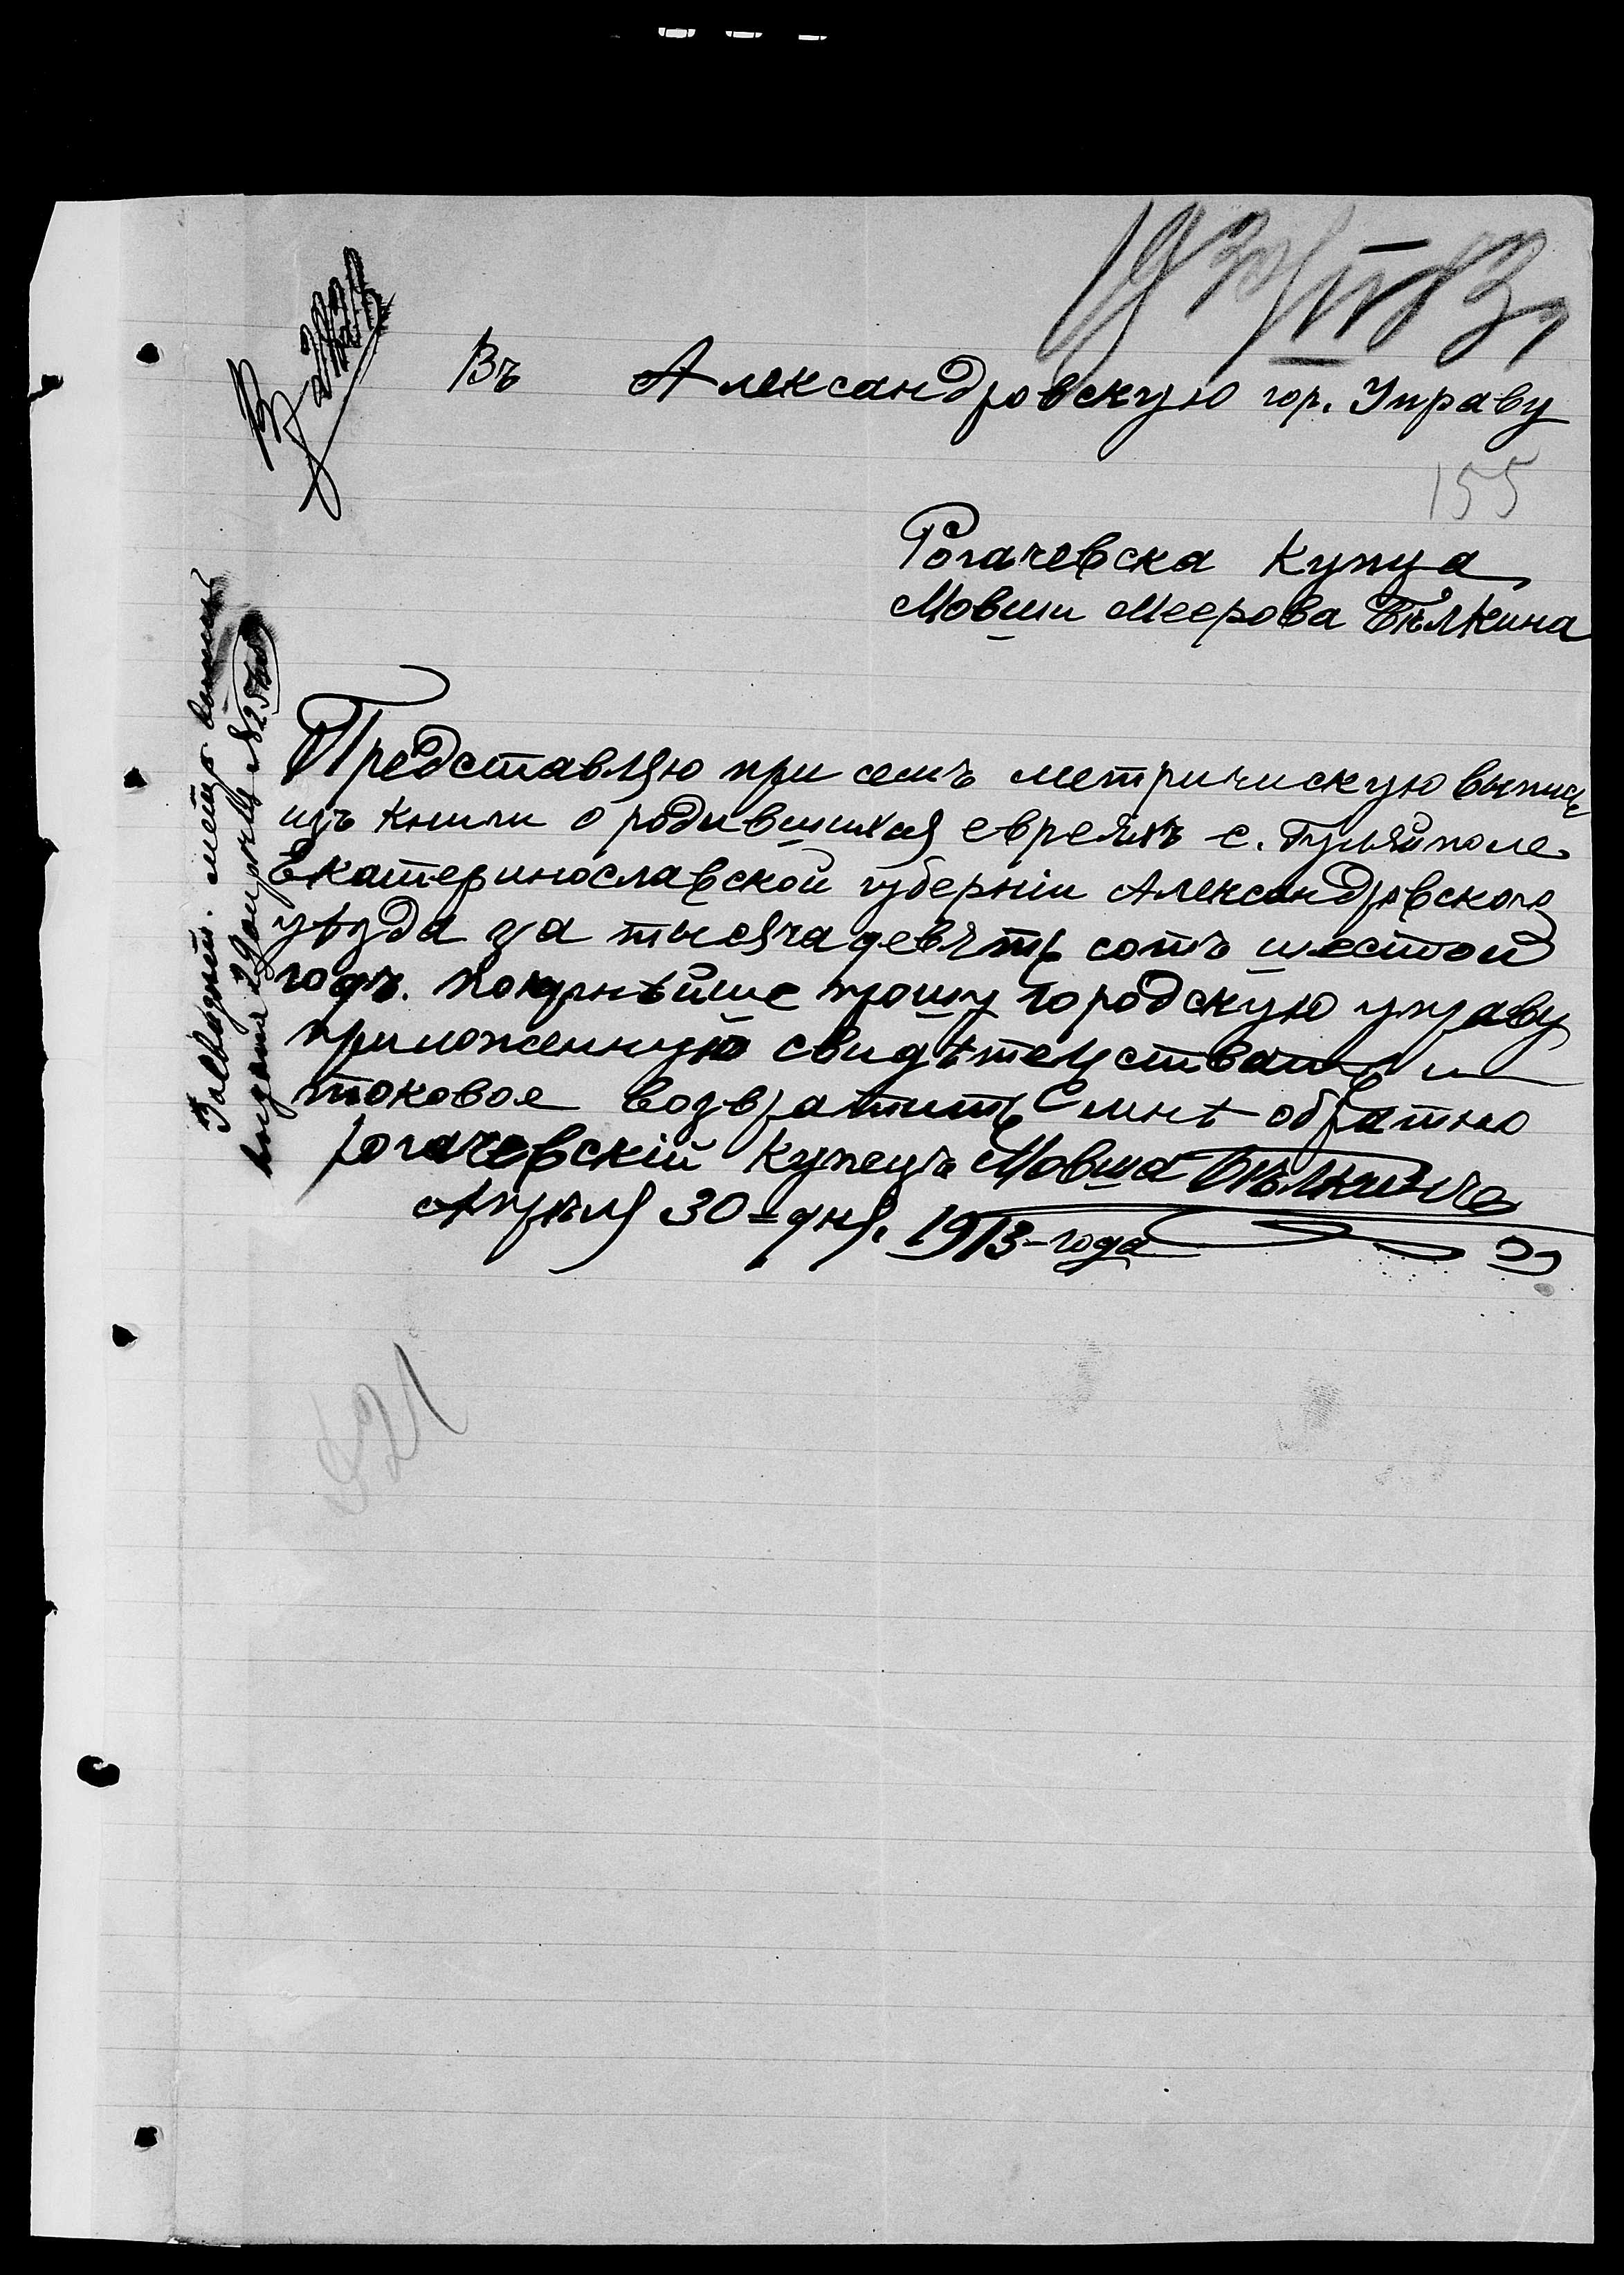 Въ Александровскую гор. Управу
155
Рогачевска купца
Мовши Меерова Бѣлкина
Представляю при семъ метричискую выпись
изъ книги о родившихся евреяхъ с. Гуляйполе
Екатеринославской губерніи Александровского
уѣзда за тысяча девять сотъ шестой
годъ. покорнѣйше прошу городскую управу
приложенную свидѣтельства и
токовое возвратить мнѣ обратно
рогачевскій купецъ Мовша Бѣлкинъ
Апрѣля 30 = дня. 1913-года
521